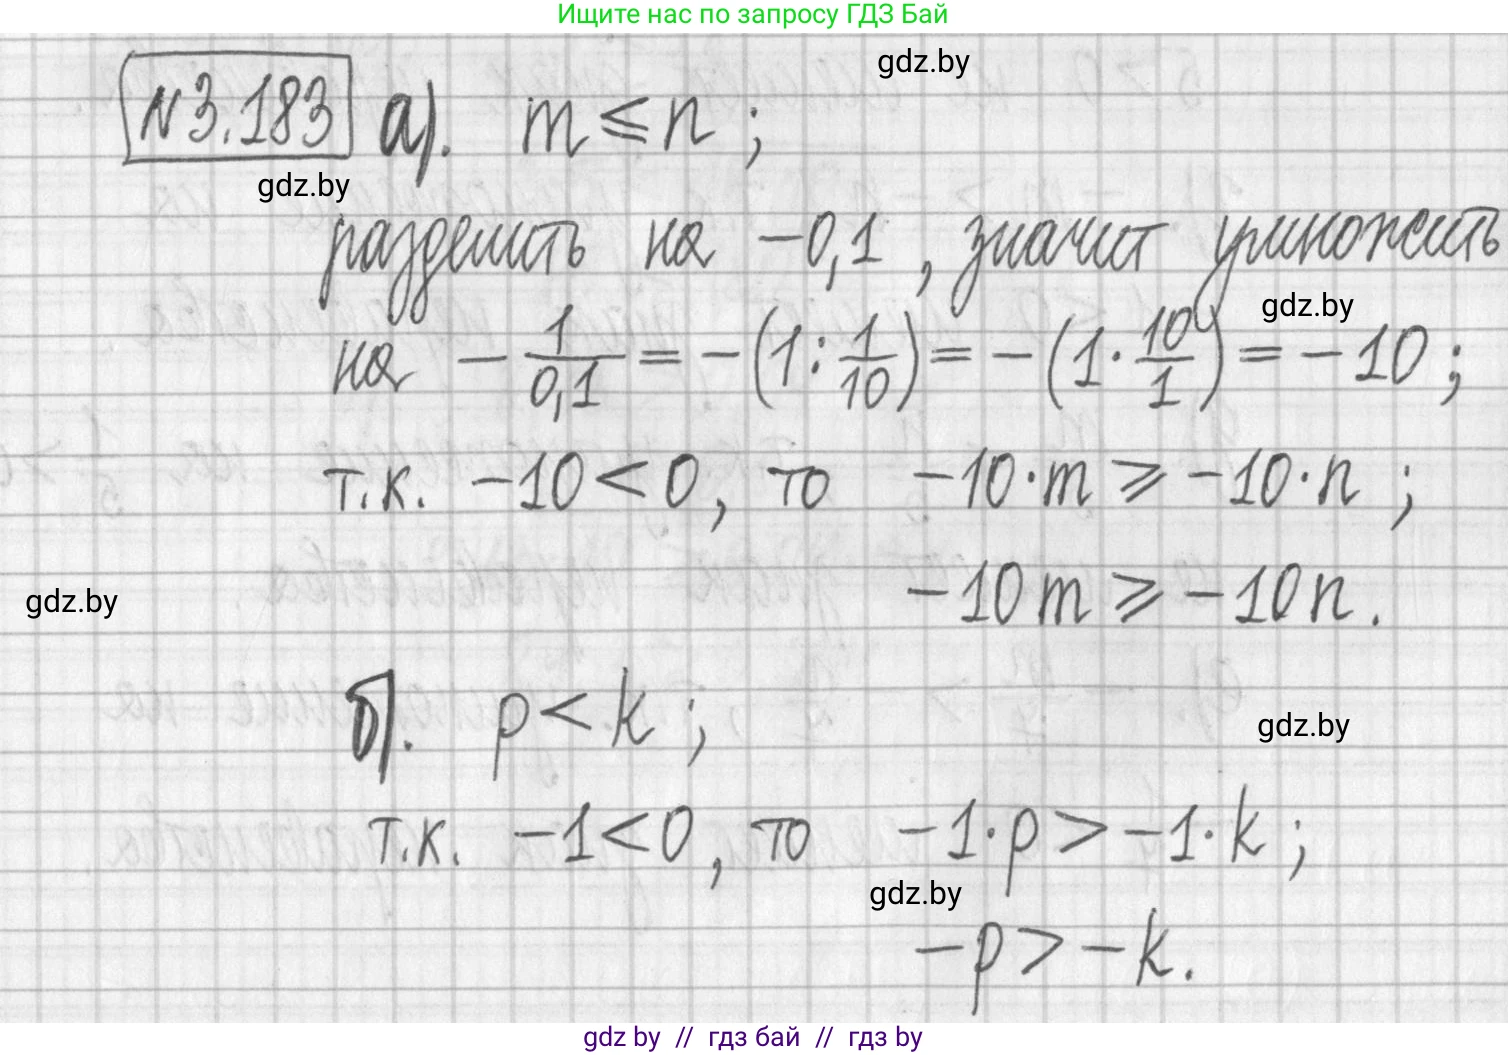 Ищите нас по запросу ГДЗ Бай
gdz.by
№3.183 а). m ⩽ n ;
gdz.by
разделить на −0,1 , значит умножить
gdz.by
на − 1/0,1 = −(1 : 1/10) = −(1 · 10/1) = −10 ;
т.к. −10 < 0, то −10·m ⩾ −10·n ;
gdz.by
−10m ⩾ −10n .
б). p < k ;
gdz.by
т.к. −1 < 0, то −1·p > −1·k ;
gdz.by
−p > −k .
gdz by // гдз бай // гдз by